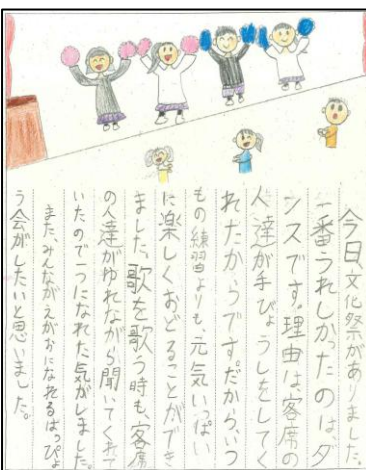 今日文化祭がありました。
一番うれしかったのは、ダ
ンスです。理由は、客席の
人達が手びょうしをしてく
れたからです。だから、いつ
もの練習よりも、元気いっぱい
に楽しくおどることができ
ました。歌を歌う時も、客席
の人達がゆれながら聞いてくれて
いたので一つになれた気がしました。
またみんながえがおになれるはっぴょ
う会がしたいと思いました。